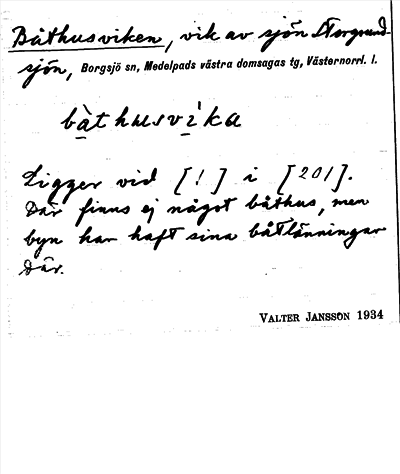 Båthusviken, vik av sjön Storsund-
sjön, Borgsjö sn, Medelpads västra domsagas tg, Västernorrl. l.
bàthusvi̍ka
Ligger vid [!] i [201].
Där finns ej något båthus, men
byn har haft sina båtlänningar
där.
VALTER JANSSON 1934